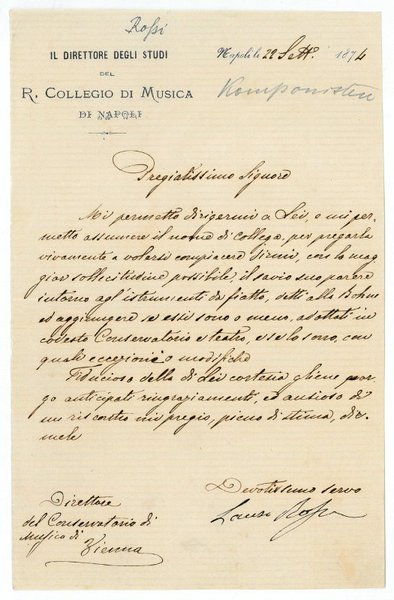 Rossi
IL DIRETTORE DEGLI STUDI
DEL
R. COLLEGIO DI MUSICA
DI NAPOLI
Napoli li 22 Sett. 1874
Komponisten
Pregiatissimo Signore
Mi permetto dirigermi a Lei, e mi per-
metto assumere il nome di Collega, per pregarla
vivamente a volersi compiacere dirmi, con la mag
gior sollecitudine possibile, il savio suo parere
intorno agl'istrumenti da fiatto, detti alla Böhm
ed aggiungere se essi sono o meno, adottati in
codesto Conservatorio e teatro, e se lo sono, con
quale eccezione o modifiche
Fiducioso della di Lei cortesia gliene por-
go anticipati ringraziamenti, ed ansioso di
un riscontro mi pregio, pieno di stima, dir
mele
Devotissimo servo
Lauro Rossi
Direttore
del Conservatorio di
Musica di
Vienna